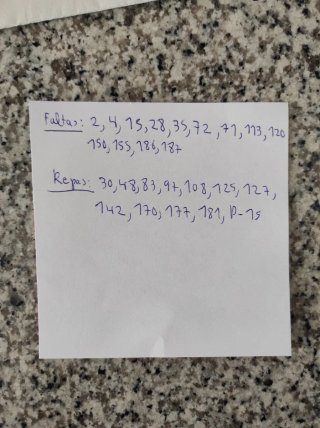 Faltas: 2, 4, 15, 28, 35, 72, 71, 113, 120
150, 155, 186, 187
Repes: 30, 48, 83, 97, 108, 125, 127,
142, 170, 177, 181, P-15